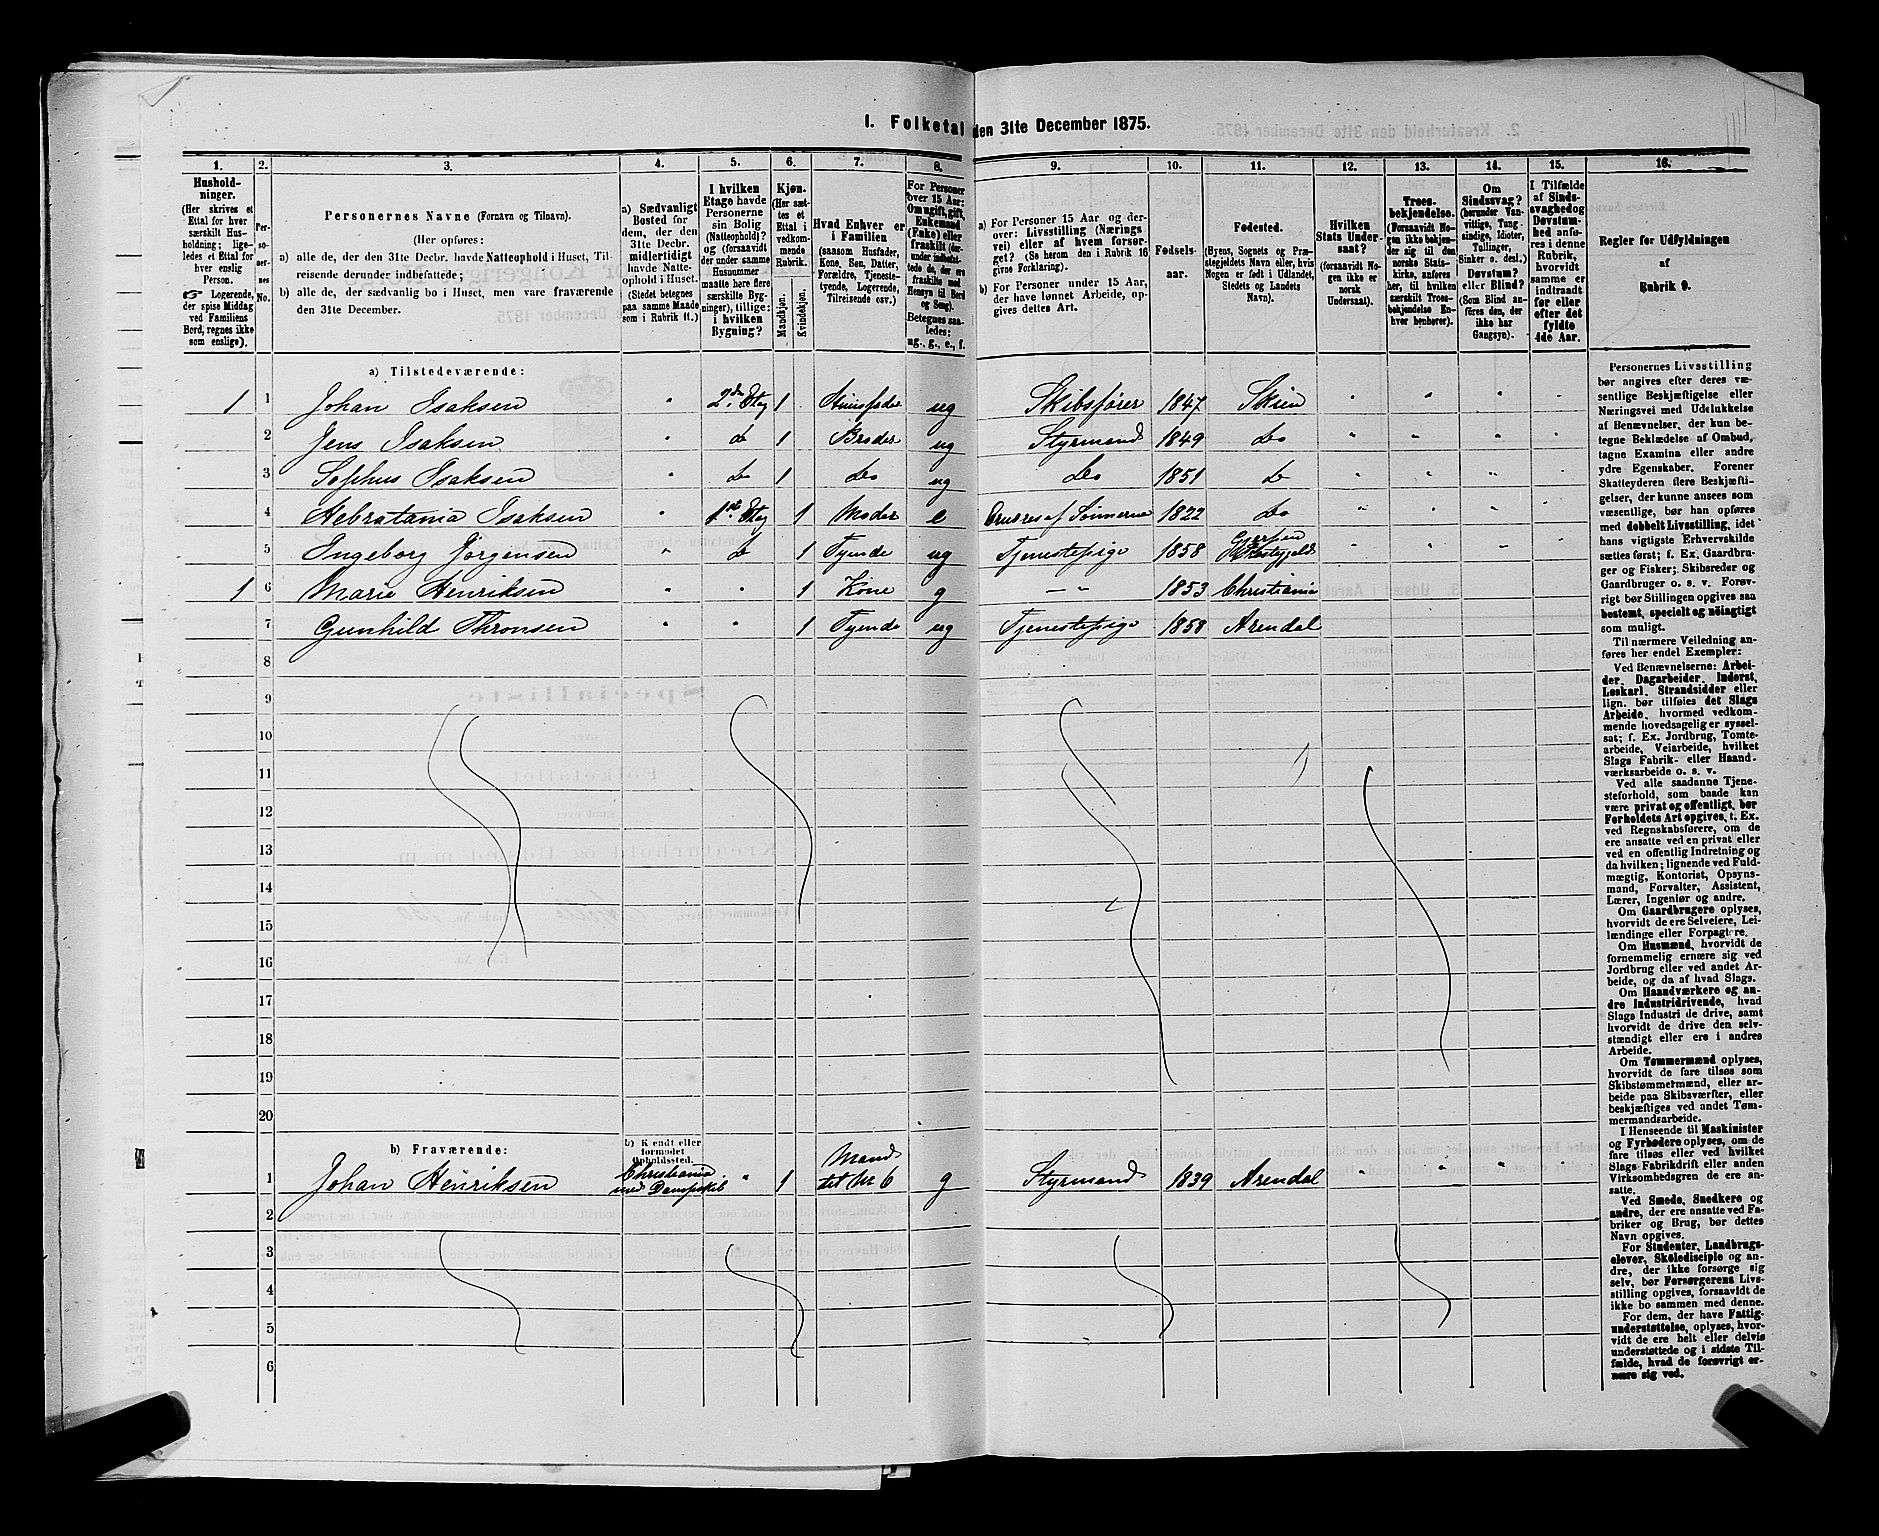 1. Folketal den 31te December 1875.
1. 2. 3. 4. 5. 6. 7. 8. 9. 10. 11. 12. 13. 14. 15. 16.
Husholdninger.
(Her skrives et Ettal for hver særskilt Husholdning; ligeledes et Ettal for hver enslig Person.
☞ Logerende, der spise Middag ved Familiens Bord, regnes ikke som enslige).
Personernes No.
Personernes Navne (Fornavn og Tilnavn).
(Her opføres:
a) alle de, der den 31te Decbr. havde Natteophold i Huset, Tilreisende derunder indbefattede;
b) alle de, der sædvanlig bo i Huset, men vare fraværende den 31te December.
a) Sædvanligt Bosted for dem, der den 31te Decbr. midlertidigt havde Natteophold i Huset.
(Stedet betegnes paa samme Maade som i Rubrik 11.)
I hvilken Etage havde Personerne sin Bolig (Natteophold)? og (forsaavidt der under samme Husnummer maatte høre flere særskilte Bygninger), tillige: i hvilken Bygning?
Kjøn. (Her sættes et Ettal i vedkommende Rubrik.
Mandkjøn. Kvindekjøn.
Hvad Enhver er i Familien
(saasom Husfader, Kone, Søn, Datter, Forældre, Tjenestetyende, Logerende, Tilreisende osv.)
For Personer over 15 Aar: Om ugift, gift, Enkemand (Enke) eller fraskilt (derunder indbefattede de, der ere fraskilte med Hensyn til Bord og Seng).
Betegnes saaledes: ug., g., e., f.
a) For Personer 15 Aar og derover: Livsstilling (Næringsvei) eller af hvem forsørget? (Se herom den i Rubrik 16 givne Forklaring).
b) For Personer under 15 Aar, der have lønnet Arbeide, opgives dettes Art.
Fødselsaar.
Fødested.
(Byens, Sognets og Præstegjeldets Navn eller, hvis Nogen er født i Udlandet, Stedets og Landets Navn).
Hvilken Stats Undersaat?
(forsaavidt Nogen ikke er norsk Undersaat.)
Troesbekjendelse.
(Forsaavidt Nogen ikke bekjender sig til den norske Statskirke, anføres her, til hvilken særskilt Troesbekjendelse Enhver henhører).
Om Sindssvag? (herunder Vanvittige, Tungsindige, Idioter, Tullinger, Sinker o. desl.)
Døvstum? eller Blind? (Som Blind anføres den, der ikke har Gangsyn).
I Tilfælde af Sindssvaghed og Døvstumhed anføres i denne Rubrik, hvorvidt samme er indtraadt før eller efter det fyldte 4de Aar.
Regler for Udfyldningen af Rubrik 9.
a) Tilstedeværende:
1 1 Johan Isaksen " 2den Etag 1 Huusfader ug Skibsfører 1847 Skien " " " "
2 Jens Isaksen " do 1 Broder ug Styrmand 1849 do " " " "
3 Sophus Isaksen " do 1 do ug do 1851 do " " " "
4 Hebratania Isaksen " 1ste Etag 1 Moder e Ernæres af Sønnerne 1822 do " " " "
5 Ingeborg Jörgensen " do 1 Tyende ug Tjenestepige 1858 Gjerpen Præstegjeld " " " "
1 6 Marie Henriksen " " 1 Kone g — " 1853 Christiania
7 Gunhild Thronsen " " 1 Tyende ug Tjenestepige 1858 Arendal
8
9
10
11
12
13
14
15
16
17
18
19
20
b) Fraværende:
b) Kjendt eller formodet Opholdssted.
1 Johan Henriksen Christiania med Dampskib " 1 Mand til No 6 g Styrmand 1839 Arendal " " " "
2
3
4
5
6
Personernes Livsstilling
bør angives efter deres væ-
sentlige Beskjæftigelse eller
Næringsvei med Udelukkelse
af Benævnelser, der kun be-
tegne Beklædelse af Ombud,
tagne Examina eller andre
ydre Egenskaber. Forener
Skatteyderen flere Beskjæfti-
gelser, der kunne ansees som
væsentlige, bør han opføres
med dobbelt Livsstilling, idet
hans vigtigste Erhvervskilde
sættes først; f. Ex. Gaardbru-
ger og Fisker; Skibsreder og
Gaardbruger o. s. v. Forøv-
rigt bør Stillingen opgives saa
bestemt, specielt og nöiagtigt
som muligt.
Til nærmere Veiledning an-
føres her endel Exempler:
Ved Benævnelserne: Arbei-
der, Dagarbeider, Inderst,
Løskarl, Strandsidder eller
lign. bør tilføies det Slags
Arbeide, hvormed vedkom-
mende hovedsagelig er syssel-
sat; f. Ex. Jordbrug, Tomte-
arbeide, Veiarbeide, hvilket
Slags Fabrik- eller Haand-
værksarbeide o. s. v.
Ved alle saadanne Tjene-
steforhold, som baade kan
være privat og offentligt, bør
Forholdets Art opgives, t. Ex.
ved Regnskabsførere, om de
ere ansatte ved en privat eller
ved en offentlig Indretning og
da hvilken; lignende ved Fuld-
mægtig, Kontorist, Opsyns-
mand, Forvalter, Assistent,
Lærer, Ingeniør og andre.
Om Gaardbrugere oplyses,
hvorvidt de ere Selveiere, Lei-
lændinge eller Forpagtere.
Om Husmænd, hvorvidt de
fornemmelig ernære sig ved
Jordbrug eller ved andet Ar-
beide, og da af hvad Slags.
Om Haandværkere og an-
dre Industridrivende, hvad
Slags Industri de drive, samt
hvorvidt de drive den selv-
stændigt eller ere i andres
Arbeide.
Om Tømmermænd oplyses,
hvorvidt de fare tilsøs som
Skibstømmermænd, eller ar-
beide paa Skibsværfter, eller
beskjæftiges ved andet Tøm-
mermandsarbeide.
I Henseende til Maskinister
og Fyrbødere oplyses, om de
fare tilsøs eller ved hvilket
Slags Fabrikdrift eller anden
Virksomhedsgren de ere an-
satte.
Ved Smede, Snedkere og
andre, der ere ansatte ved Fa-
briker og Brug, bør dettes
Navn opgives.
For Studenter, Landbrugs-
elever, Skoledisciple og an-
dre, der ikke forsørge sig
selv, bør Forsørgerens Livs-
stilling opgives, forsaavidt de
ikke bo sammen med denne.
For dem, der have Fattig-
understøttelse, oplyses, hvor-
vidt de ere helt eller delvis
understøttede og i sidste Til-
fælde, hvad de forøvrigt er-
nære sig ved.